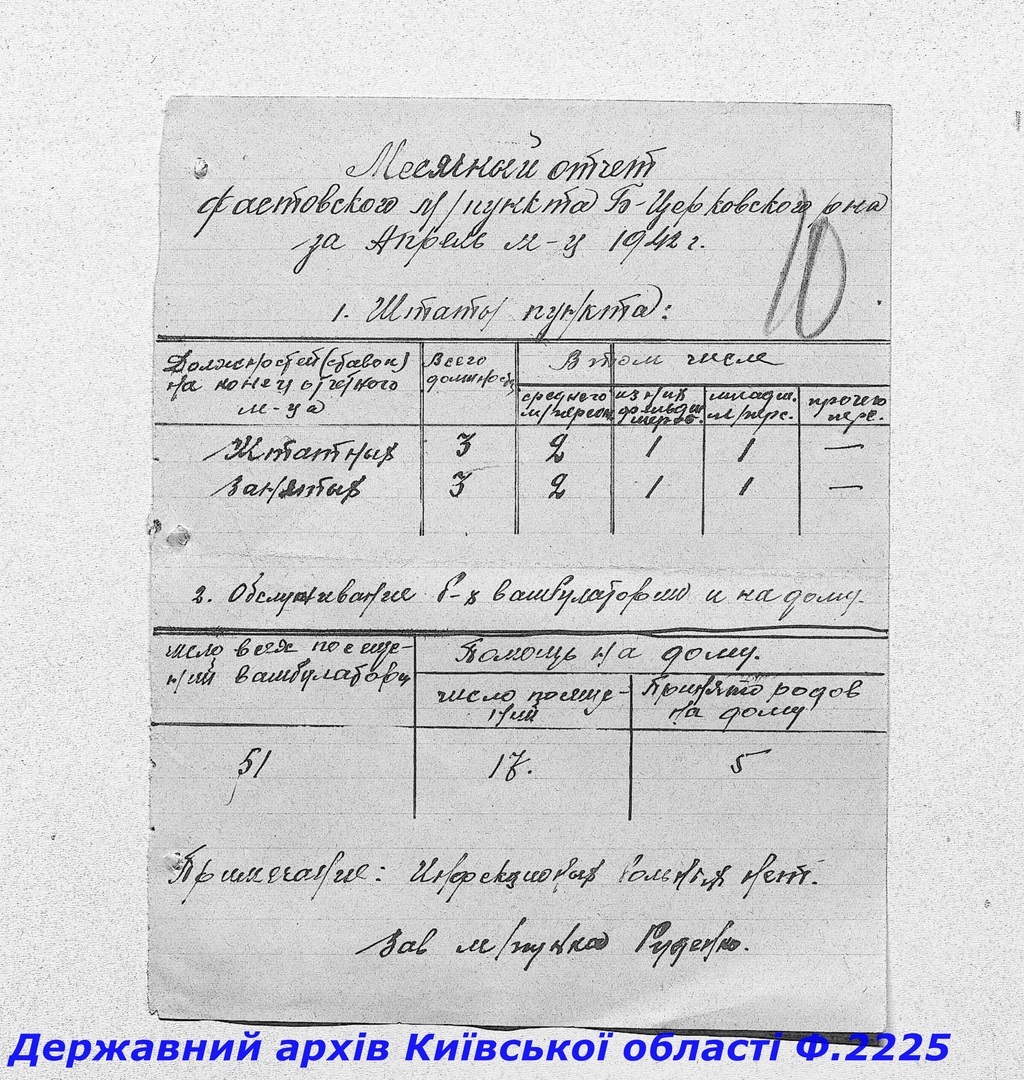 Месячный отчет
фастовского м/пункта Б-Церковского рна
за Апрель м-ц 1942 г.
10
1. Штаты пункта:
Должностей (ставок) на конец отчетного м-ца
Всего должность
В том числе
среднего м/персон
из них фельдшеров.
младш. м/перс.
прочего перс.
Штатных 3 2 1 1 —
Занятых 3 2 1 1 —
2. Обслуживание б-х в амбулатории и на дому.
число всех посеще-
ний в амбулатору
Помощь на дому.
число посеще-
ний
Принято родов
на дому
51 17. 5
Примечание: Инфекционых больных нет.
Зав м/пункта Руденко.
Державний архів Київської області Ф.2225